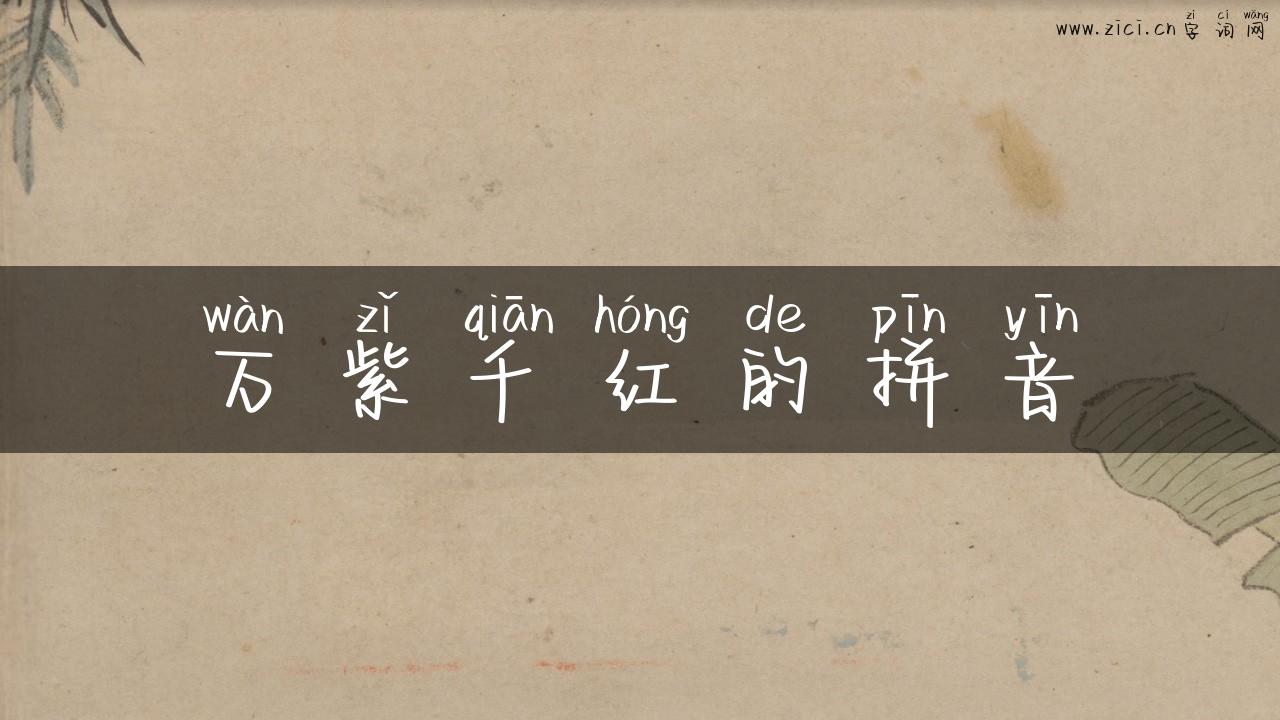 zì cí wǎng
www.zici.cn 字词网
wàn zǐ qiān hóng de pīn yīn
万紫千红的拼音